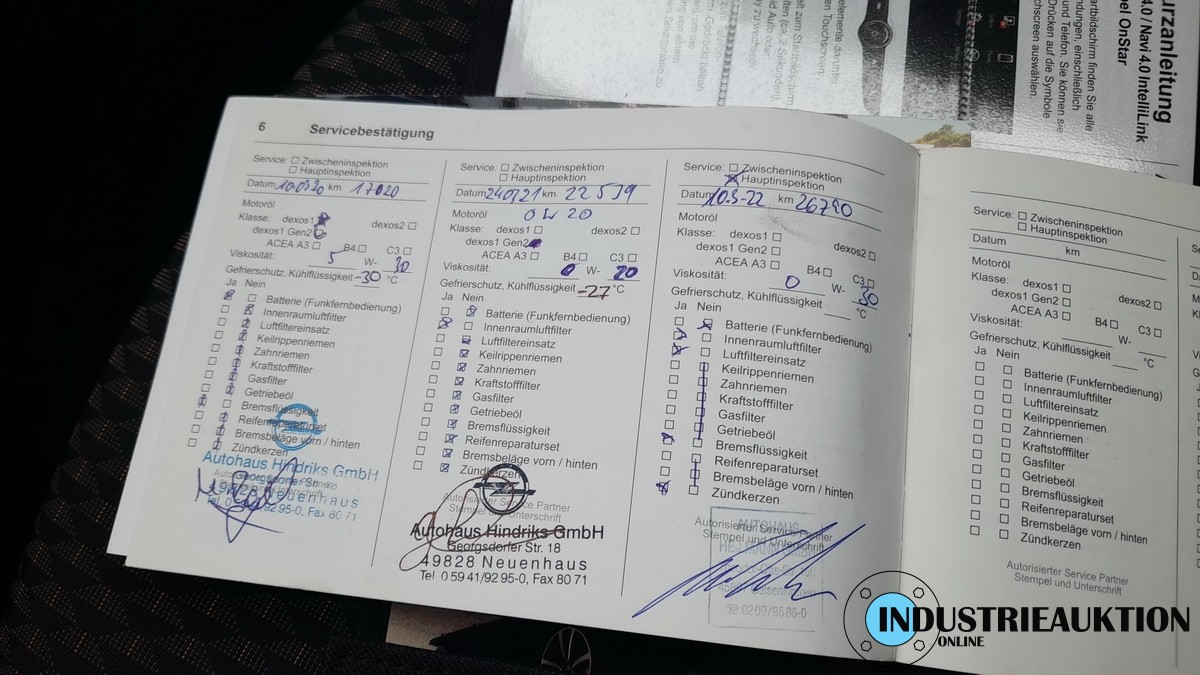 6 Servicebestätigung
Service: Zwischeninspektion
Hauptinspektion
Datum 10.03.20 km 17020
Motoröl
Klasse: dexos1 dexos2
dexos1 Gen2
ACEA A3 B4 C3
Viskosität: 5 W- 30
Gefrierschutz, Kühlflüssigkeit -30 °C
Ja Nein
Batterie (Funkfernbedienung)
Innenraumluftfilter
Luftfiltereinsatz
Keilrippenriemen
Zahnriemen
Kraftstofffilter
Gasfilter
Getriebeöl
Bremsflüssigkeit
Reifenreparaturset
Bremsbeläge vorn / hinten
Zündkerzen
Autohaus Hindriks GmbH
Georgsdorfer Str.
49828 Neuenhaus
Tel 0 59 41/92 95-0, Fax 80 71
Service: Zwischeninspektion
Hauptinspektion
Datum 240321 km 22539
Motoröl 0W20
Klasse: dexos1 dexos2
dexos1 Gen2
ACEA A3 B4 C3
Viskosität: 0 W- 20
Gefrierschutz, Kühlflüssigkeit -27 °C
Ja Nein
Batterie (Funkfernbedienung)
Innenraumluftfilter
Luftfiltereinsatz
Keilrippenriemen
Zahnriemen
Kraftstofffilter
Gasfilter
Getriebeöl
Bremsflüssigkeit
Reifenreparaturset
Bremsbeläge vorn / hinten
Zündkerzen
Autorisierter Service Partner
Stempel und Unterschrift
Autohaus Hindriks GmbH
Georgsdorfer Str. 18
49828 Neuenhaus
Tel 0 59 41/92 95-0, Fax 80 71
Service: Zwischeninspektion
Hauptinspektion
Datum 10.3-22 km 26790
Motoröl
Klasse: dexos1 dexos2
dexos1 Gen2
ACEA A3 B4 C3
Viskosität: 0 W- 30
Gefrierschutz, Kühlflüssigkeit °C
Ja Nein
Batterie (Funkfernbedienung)
Innenraumluftfilter
Luftfiltereinsatz
Keilrippenriemen
Zahnriemen
Kraftstofffilter
Gasfilter
Getriebeöl
Bremsflüssigkeit
Reifenreparaturset
Bremsbeläge vorn / hinten
Zündkerzen
Autorisierter Service Partner
Stempel und Unterschrift
AUTOHAUS
☏ 0209/9586-0
Service: Zwischeninspektion
Hauptinspektion
Datum km
Motoröl
Klasse: dexos1 dexos2
dexos1 Gen2
ACEA A3 B4 C3
Viskosität: W-
Gefrierschutz, Kühlflüssigkeit °C
Ja Nein
Batterie (Funkfernbedienung)
Innenraumluftfilter
Luftfiltereinsatz
Keilrippenriemen
Zahnriemen
Kraftstofffilter
Gasfilter
Getriebeöl
Bremsflüssigkeit
Reifenreparaturset
Bremsbeläge vorn / hinten
Zündkerzen
Autorisierter Service Partner
Stempel und Unterschrift
urzanleitung
4.0 / Navi 4.0 IntelliLink
OnStar
artbildschirm finden Sie alle
ndungen, einschließlich
und Telefon. Sie können sie
Drücken auf die Symbole
chscreen auswählen.
elemente darunter
n Touchscreen:
INDUSTRIEAUKTION
ONLINE